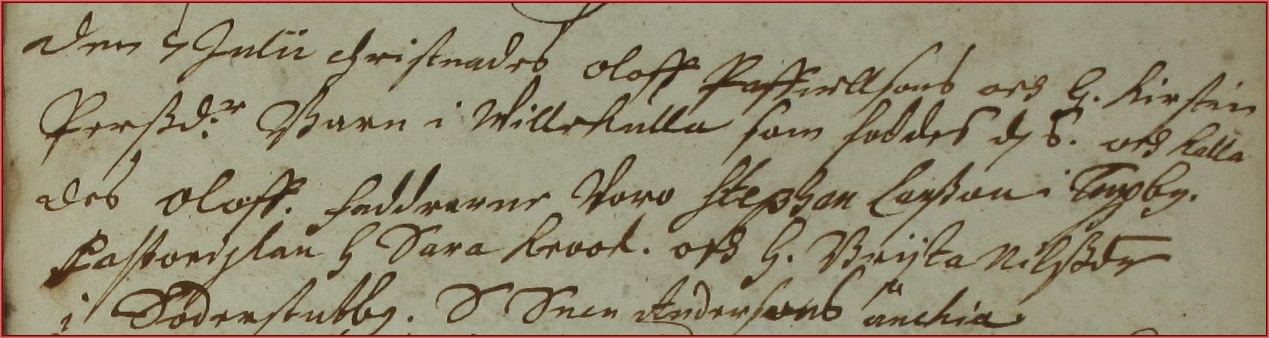 Den 7 Julii christnades Oloff Paffvellsons och H. Kirstin
Perßdr Barn i Willekulla som föddes d 5. och kalla
des Oloff. Faddrerne Voro Stephan Larßon i Tompby.
Pastorissan H Sara Krook. och H. Brijta Nilßdr
i Söderstutby. S Suen Andersons änchia